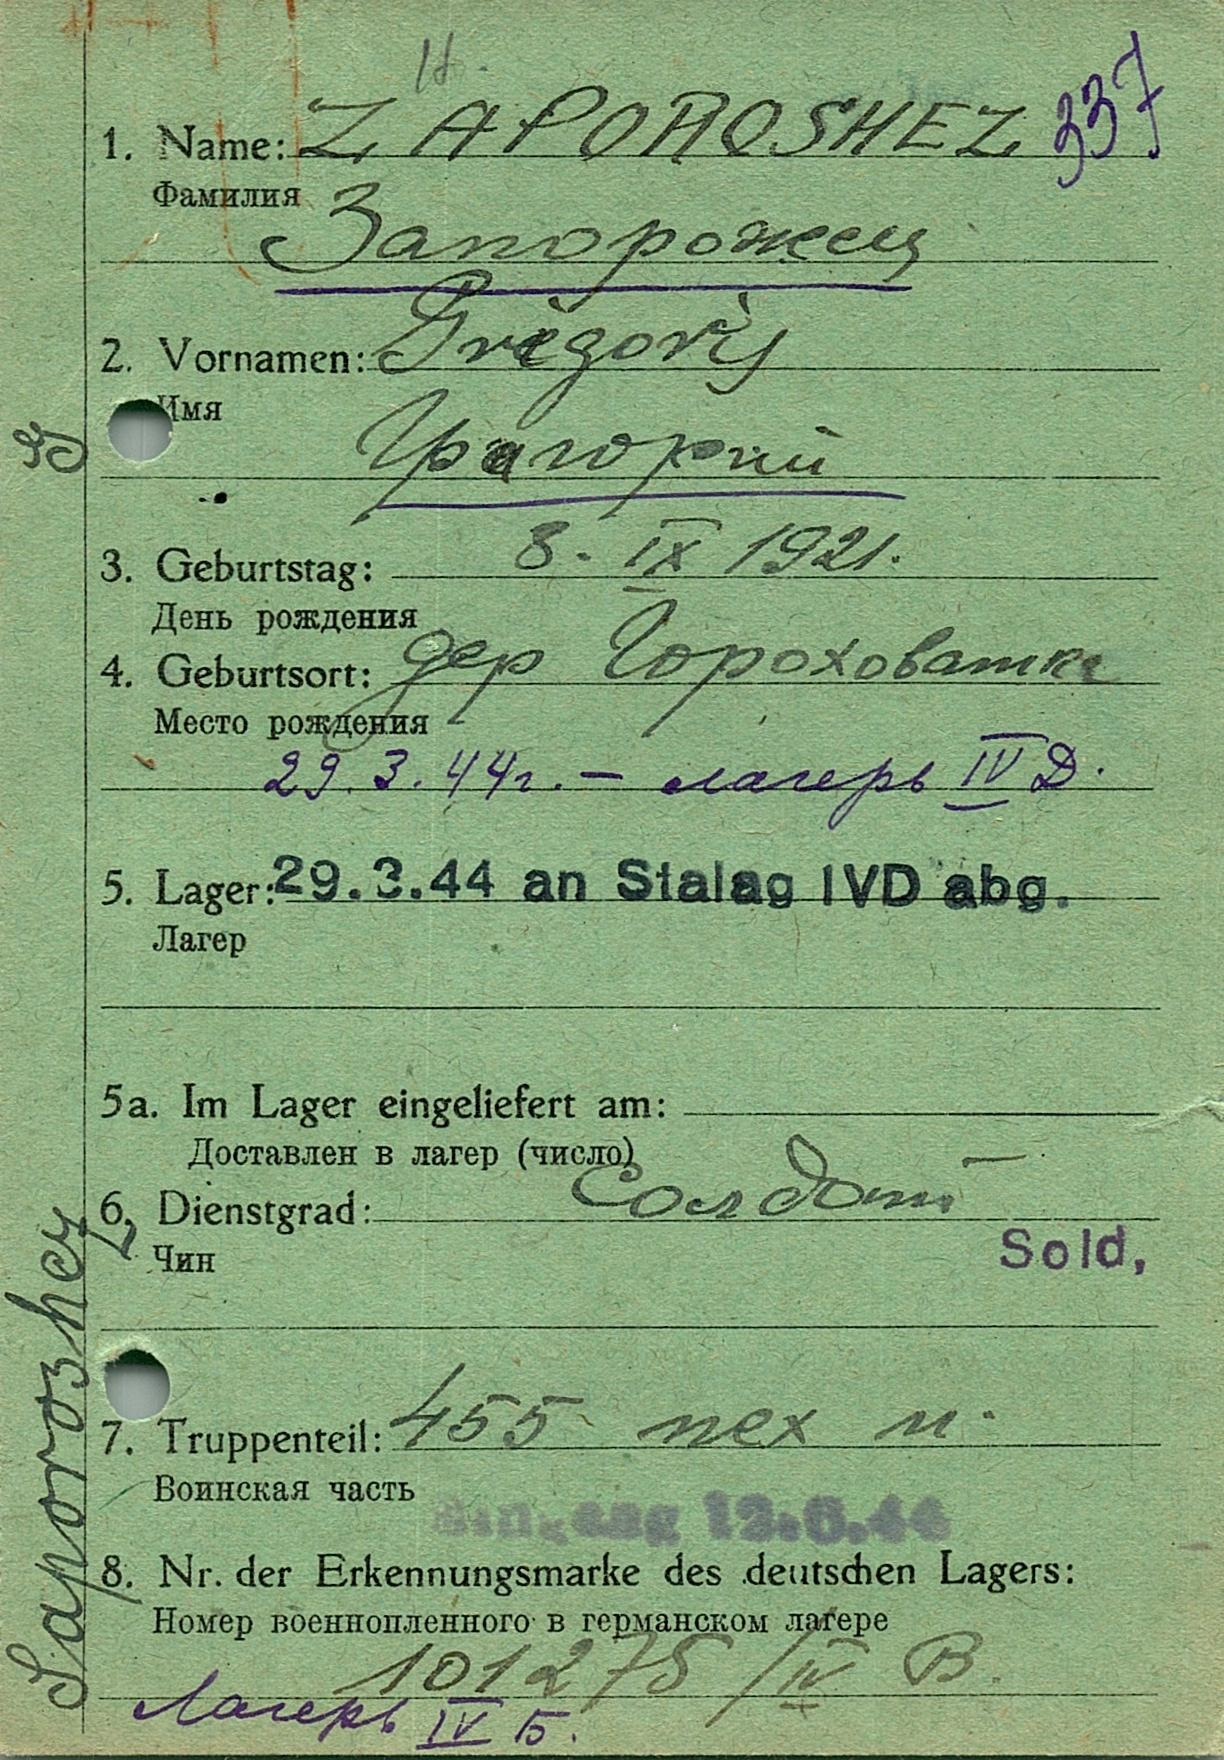 337
1. Name: ZAPOROSHEZ
Фамилия
Запорожец
2. Vornamen: Grègorij
Имя
Григорий
3. Geburtstag: 8. IX 1921.
День рождения
4. Geburtsort: дер Гороховатка
Место рождения
29.3.44г. – лагерь IV Д.
5. Lager: 29.3.44 an Stalag IVD abg.
Лагер
5a. Im Lager eingeliefert am:
Доставлен в лагер (число)
6. Dienstgrad: Солдат
Чин
Sold.
7. Truppenteil: 455 пех п.
Воинская часть
Eingang 12.6.44
8. Nr. der Erkennungsmarke des deutschen Lagers:
Номер военнопленного в германском лагере
101275 / IV B.
Лагерь IV Б.
Saporozhez